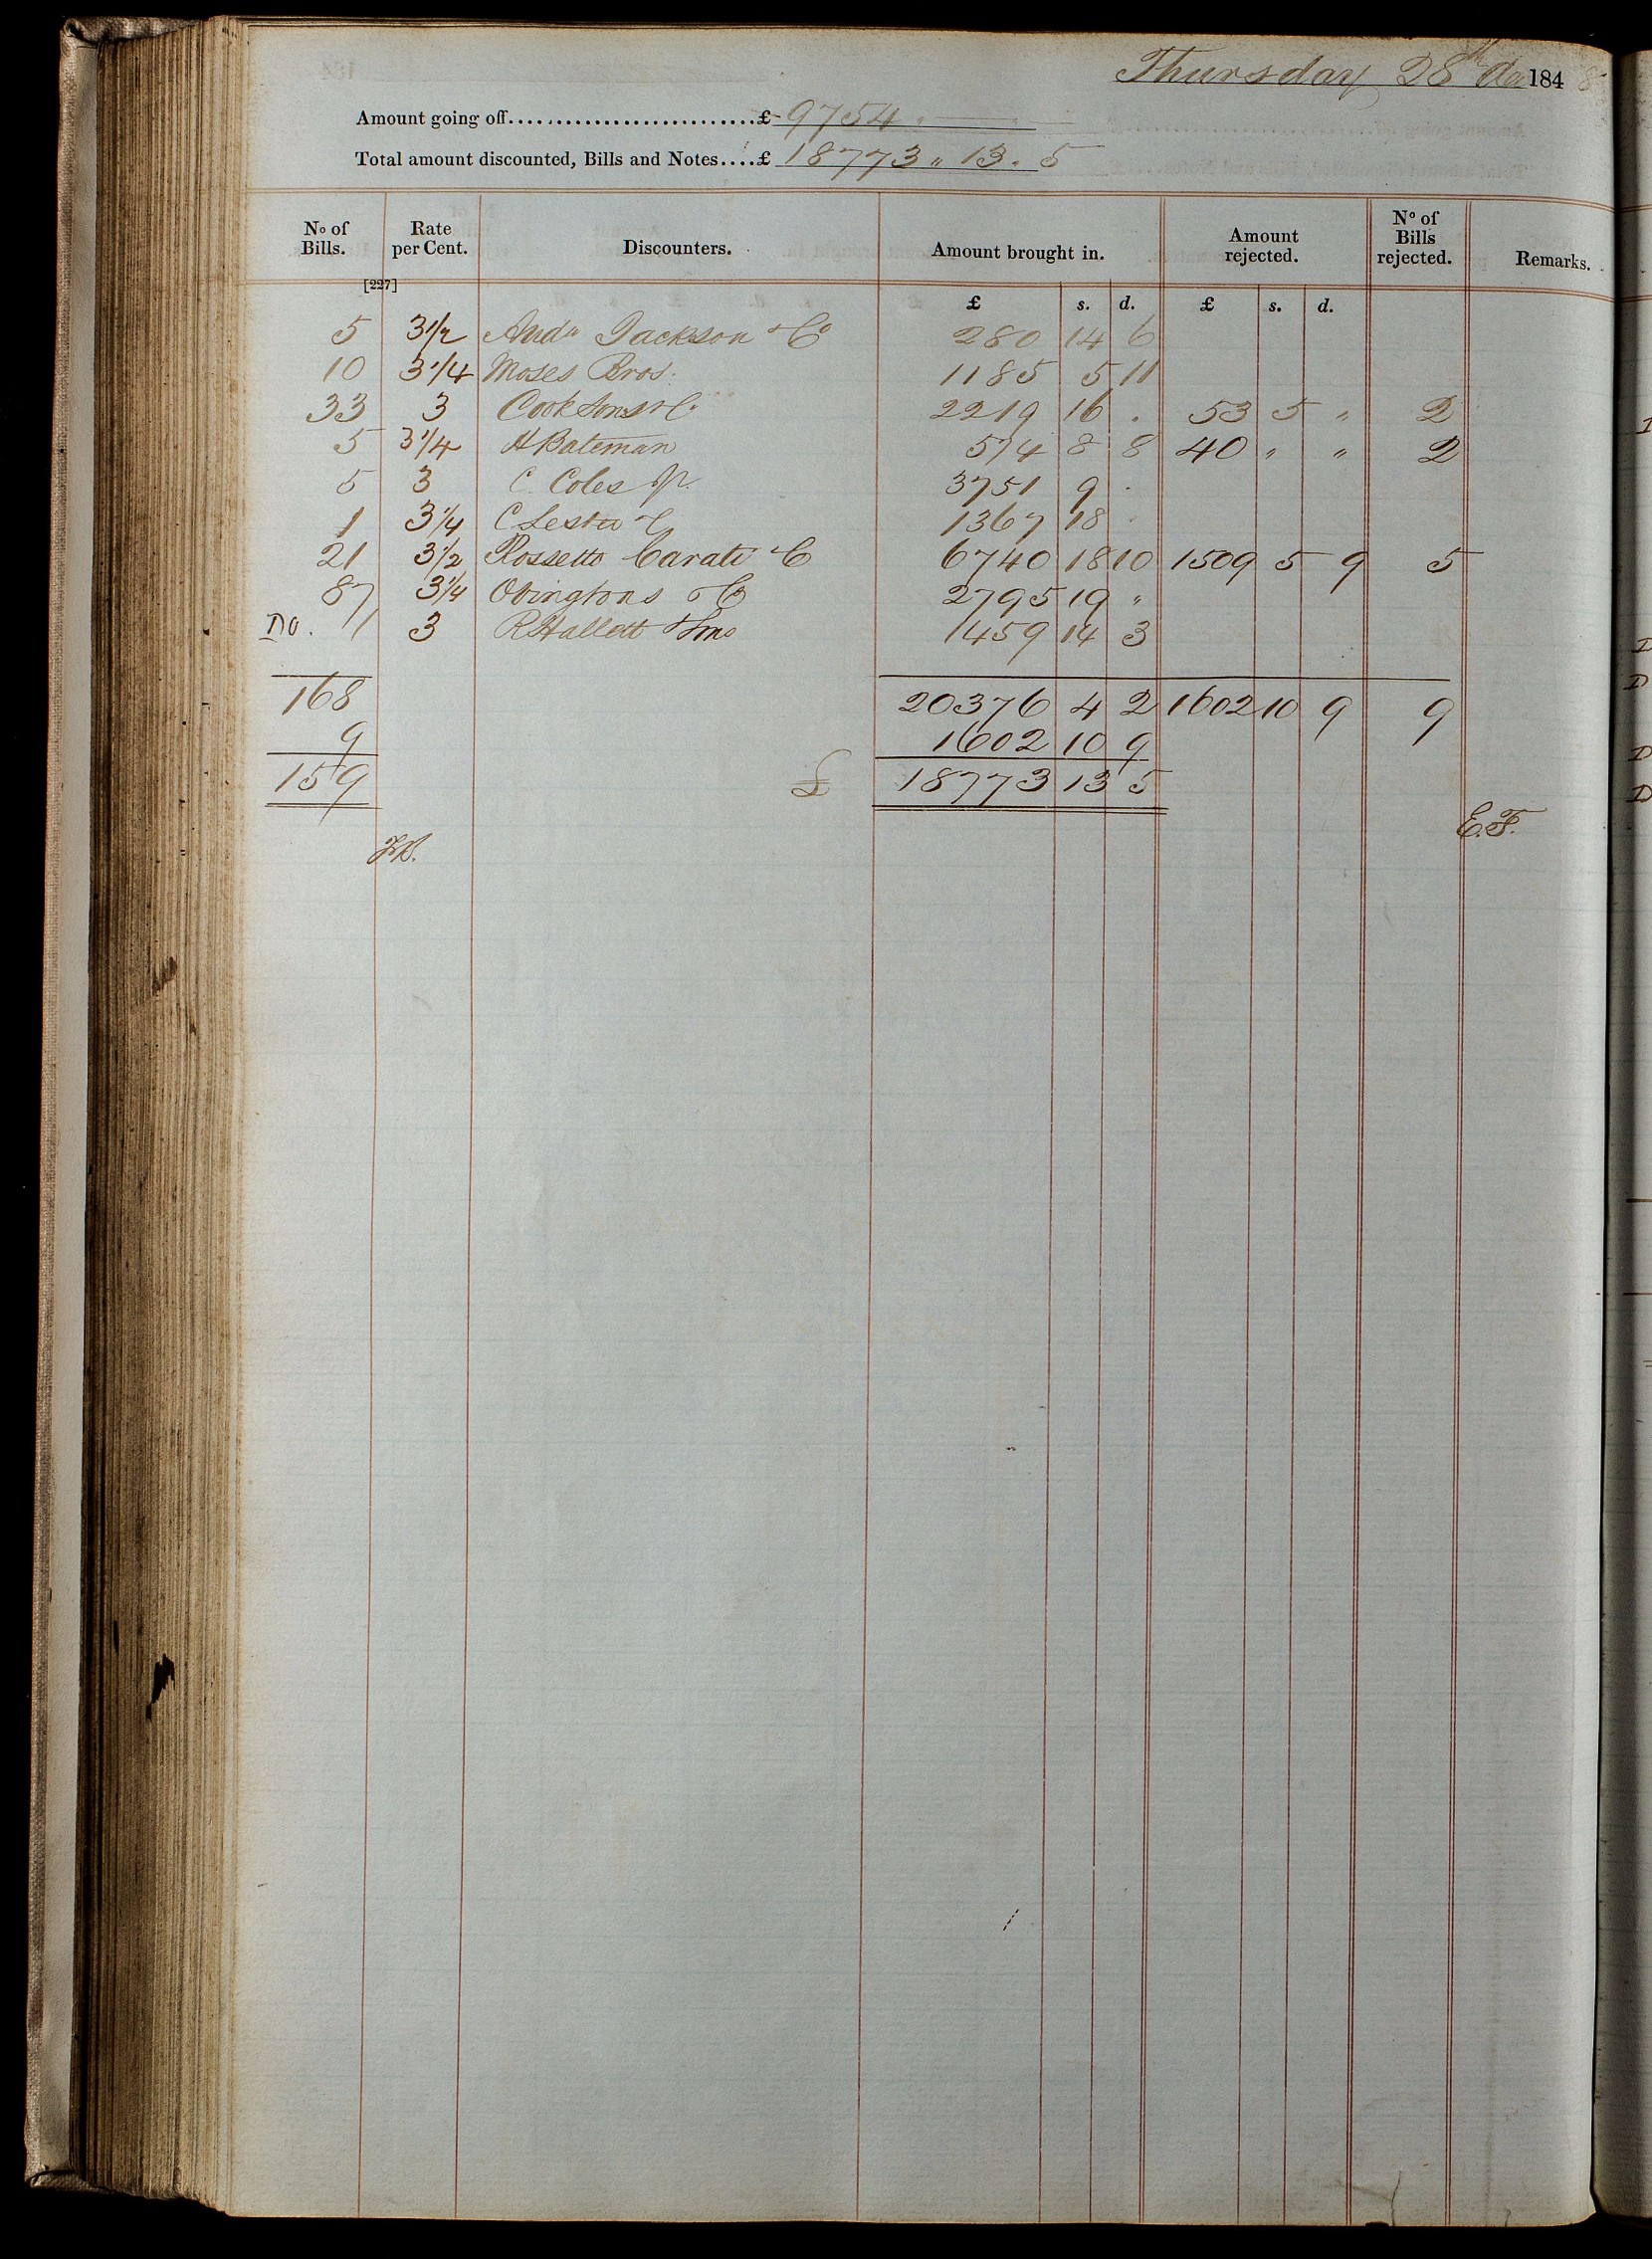 Thursday 28th Do 1848
Amount going off..........................£ 9754 " —
Total amount discounted, Bills and Notes....£ 18773 " 13 " 5
No of Bills. Rate per Cent. Discounters. Amount brought in. Amount rejected. No of Bills rejected. Remarks.
[227]
£ s. d. £ s. d.
5 3 1/2 Andw Jackson & Co 280 14 6
10 3 1/4 Moses Bros. 1185 5 11
33 3 Cook Sons & Co 2219 16 " 53 5 " 2
5 3 1/4 H Bateman 574 8 8 40 " " 2
5 3 C. Coles Jr. 3751 9 "
1 3 1/4 C Lester & Co 1367 18 "
21 3 1/2 Rossetto Carati & Co 6740 18 10 1509 5 9 5
87 3 1/4 Ovingtons & Co 2795 19 "
Do. 1 3 R Hallett & Sons 1459 14 3
168 20376 4 2 1602 10 9 9
9 1602 10 9
159 £ 18773 13 5
E.F.